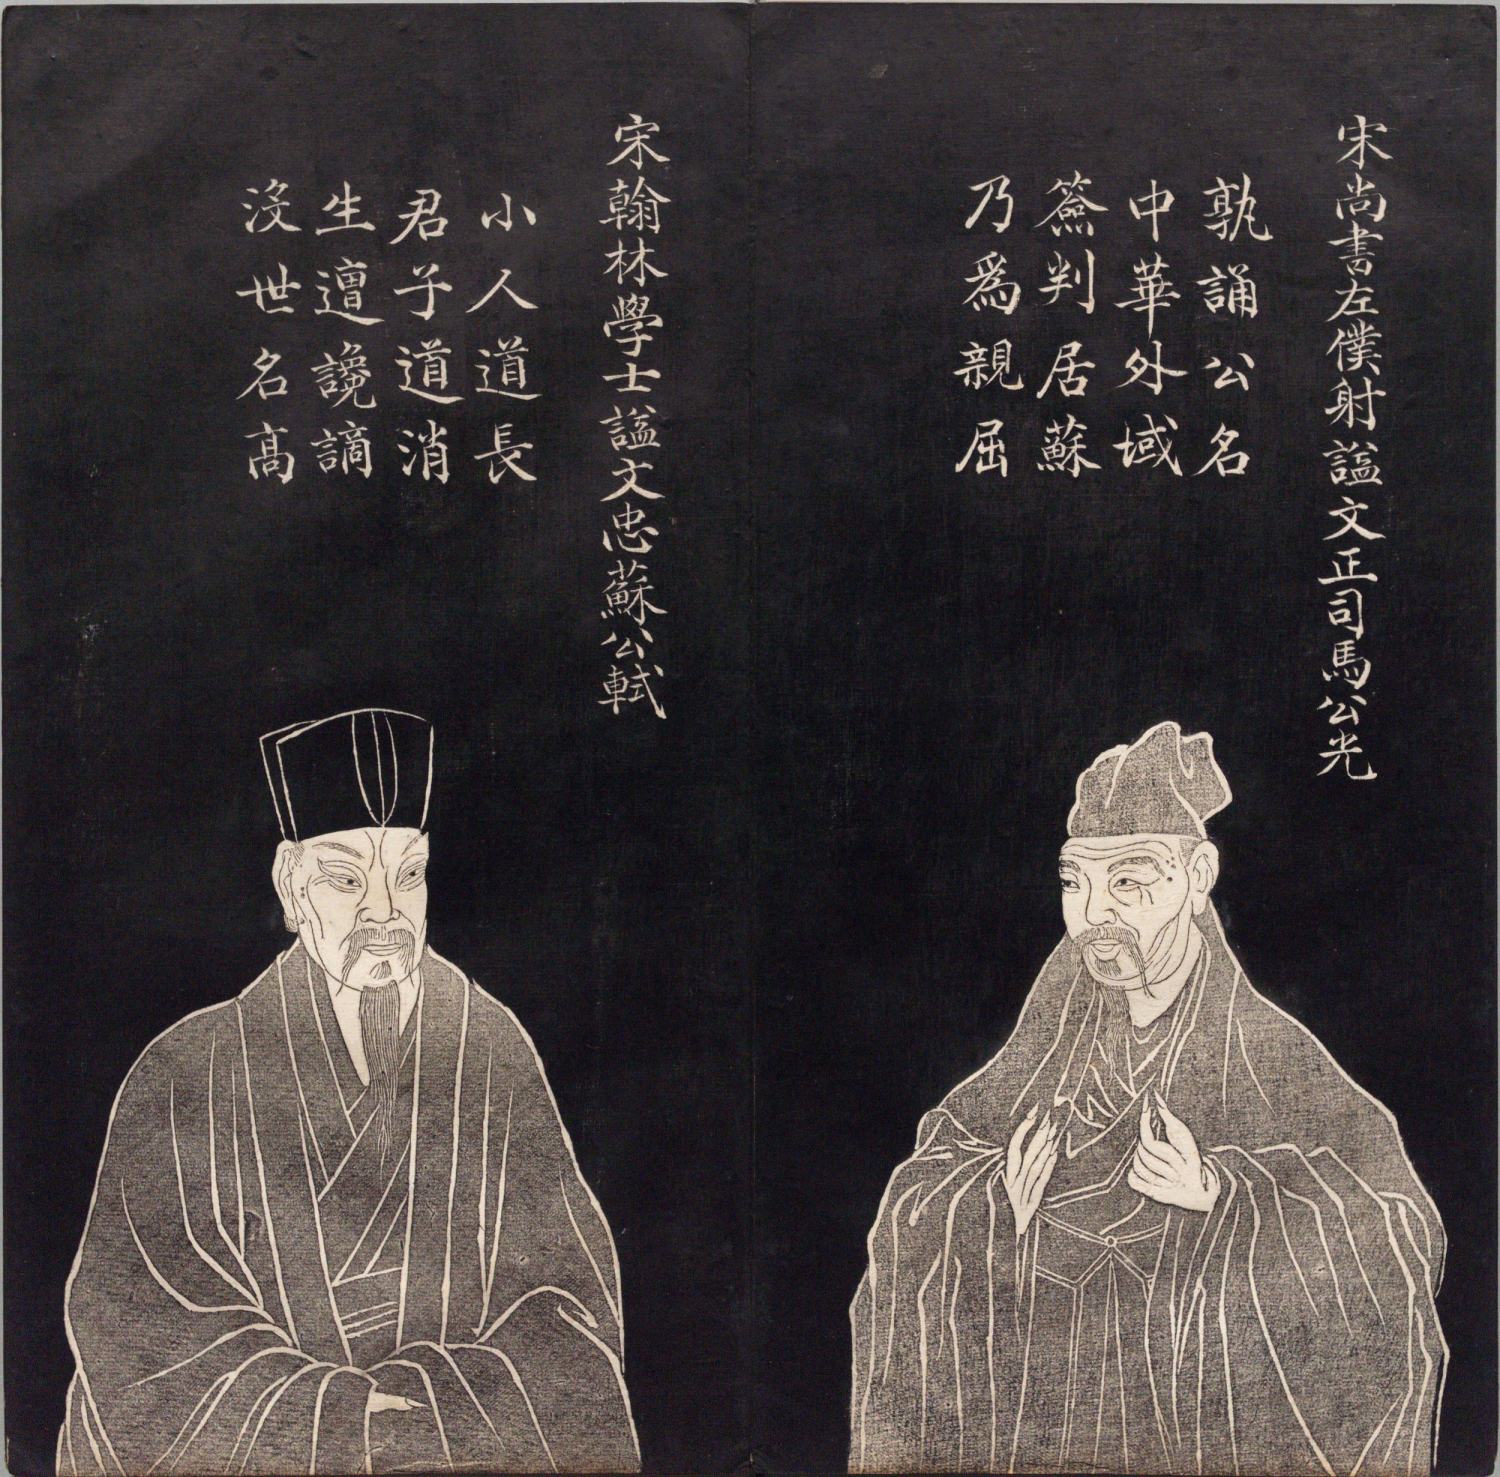 宋尚書左僕射謚文正司馬公光
孰誦公名
中華外域
簽判居蘇
乃為親屈
宋翰林學士謚文忠蘇公軾
小人道長
君子道消
生遭讒謫
沒世名高